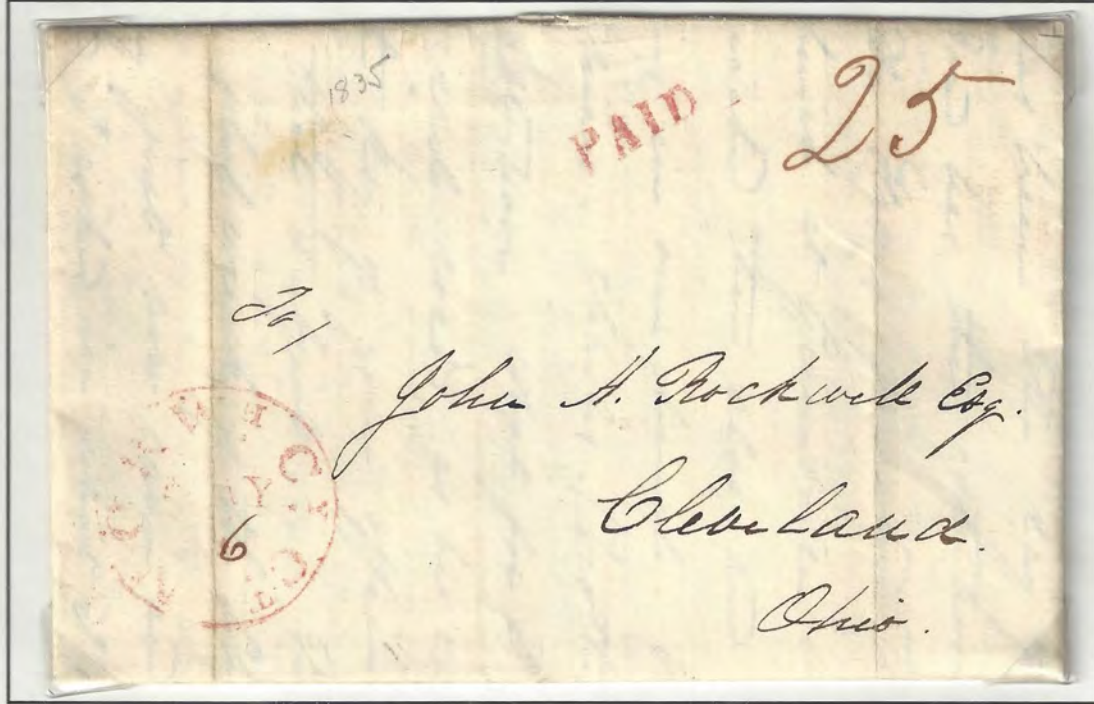 1835
PAID
25
To/
John H. Rockwell Esq.
Cleveland.
Ohio.
NORWICH CT
6